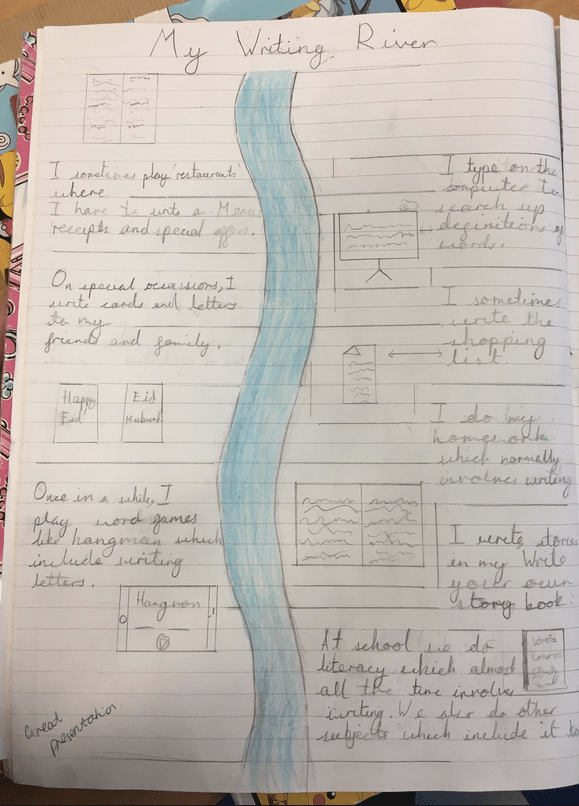 My Writing River
I sometimes play 'restaurants'
where
I have to write a Menu
receipts and special offers.
On special occassions, I
write cards and letters
to my
friends and family.
Happy
Eid
Eid
Mubarak
Once in a while, I
play word games
like hangman which
include writing
letters.
Hangman
Great
presentation.
I type on the
computer to
search up
definitions of
words.
I sometimes
write the
shopping
list.
I do my
homework
which normally
involves writing
I write stories
in my 'Write
your own
story book'.
At school we do
literacy which almost
all the time involve
writing. We also do other
subjects which include it too